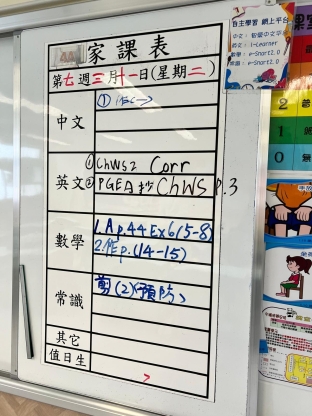 4A 家課表
第七週三月十一日(星期二)
中文
①
英文
① ChWS2 Corr
② PGEA ChWS P.3
數學
1. A p.44 Ex6(5-8)
2. 作 p.(14-15)
常識
剪(2)預防
其它
值日生
自主學習 網上平台
i-Learner
e-Smart2.0
e-Smart2.0